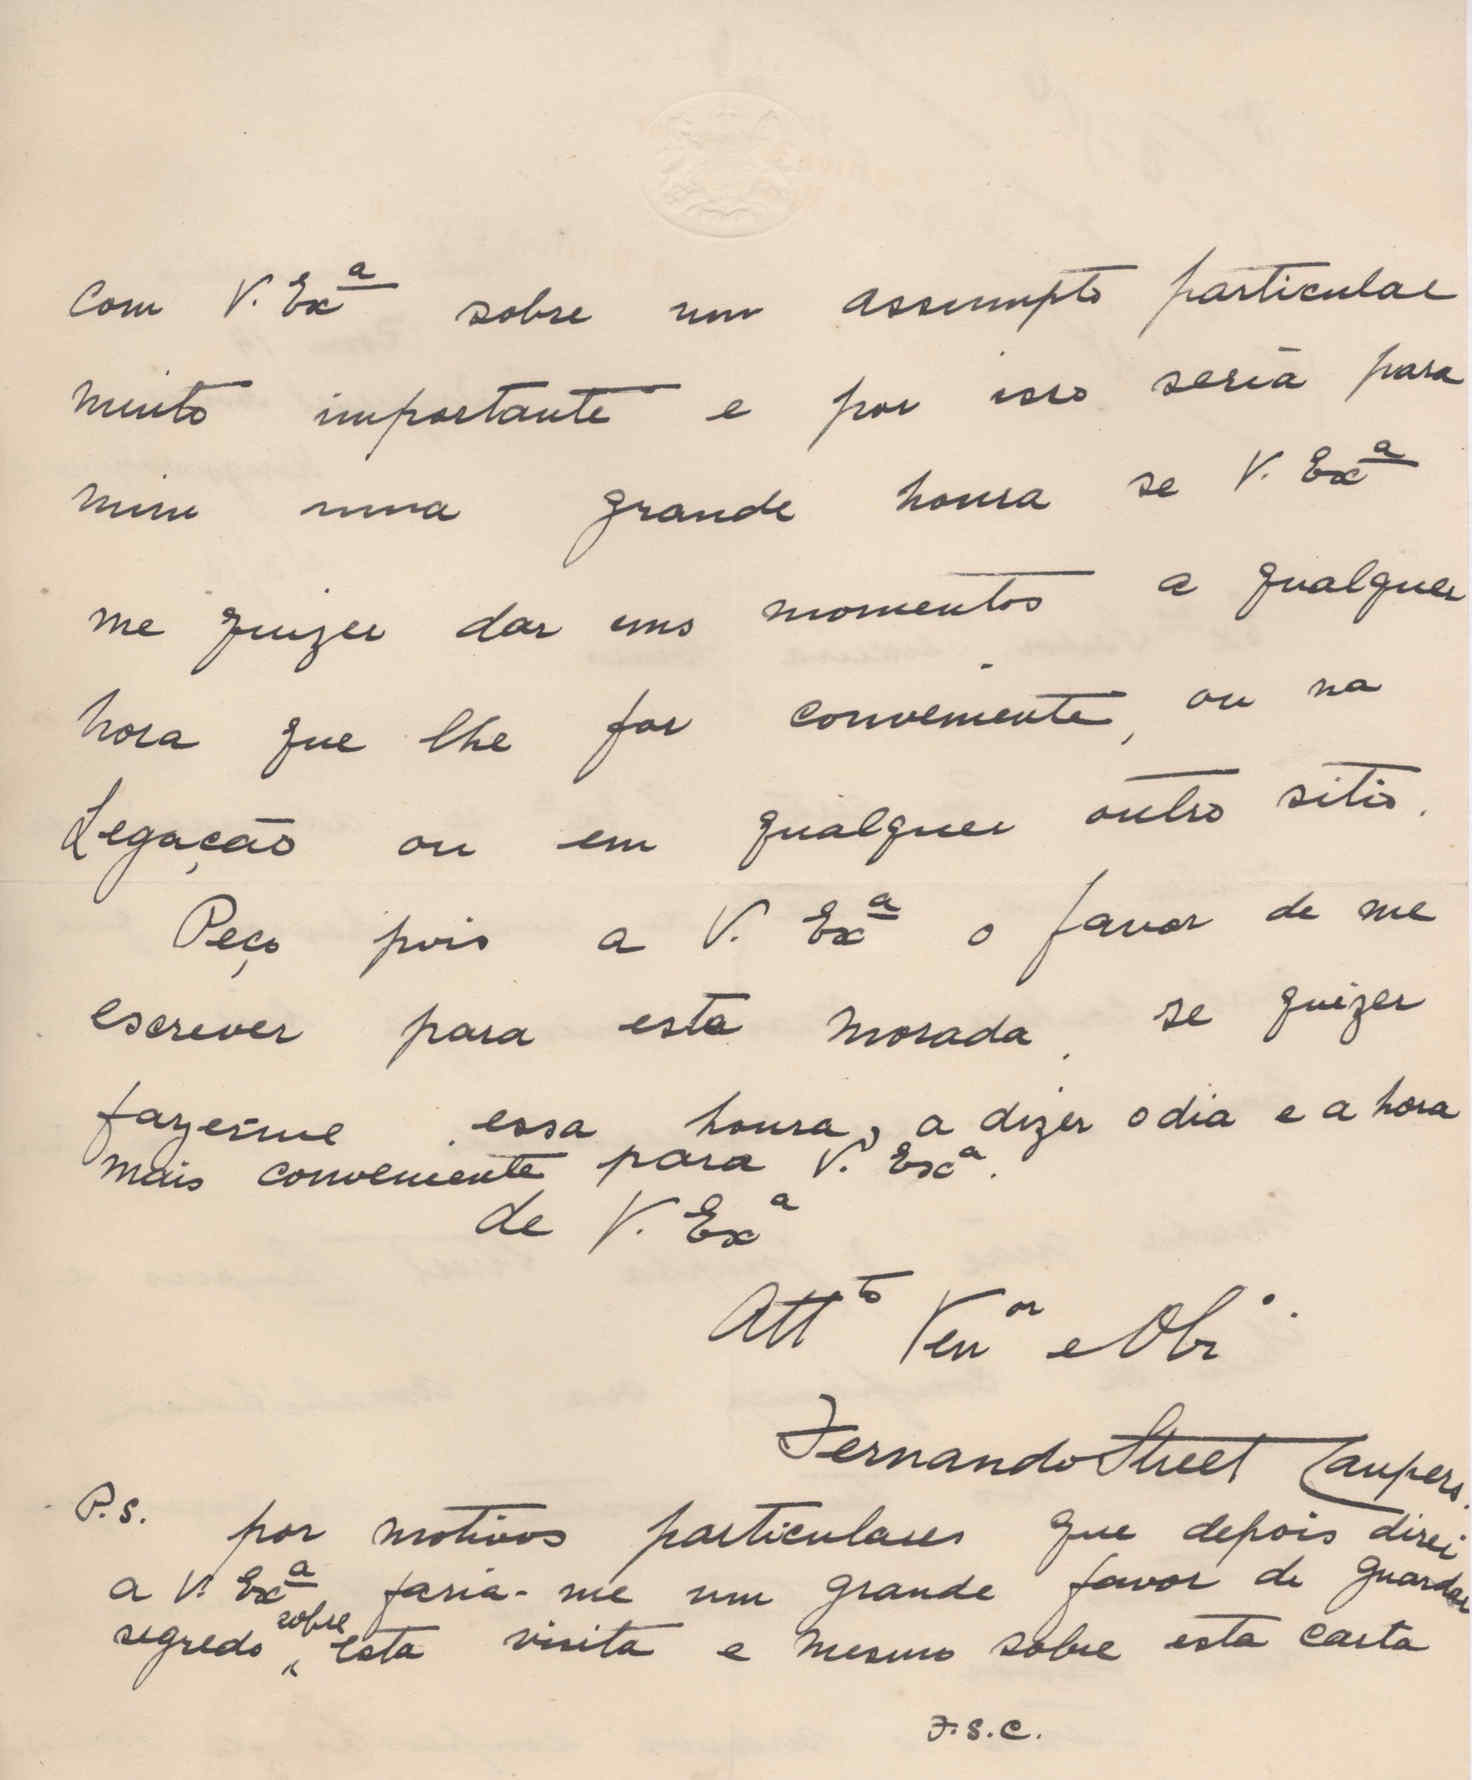 com V. Exª sobre um assumpto particular
muito importante e por isso seria para
mim uma grande honra se V. Exª
me quizer dar uns momentos a qualquer
hora que lhe for conveniente, ou na
Legação ou em qualquer outro sitio.
Peço pois a V. Exª o favor de me
escrever para esta morada, se quizer
fazer-me essa honra, a dizer o dia e a hora
mais conveniente para V. Exª.
de V. Exª
Attᵗᵒ Venᵒʳ e Obrº.
Fernando Street Caupers.
P.S. por motivos particulares que depois direi
a V. Exª faria-me um grande favor de guardar
segredo sobre esta visita e mesmo sobre esta carta
F.S.C.